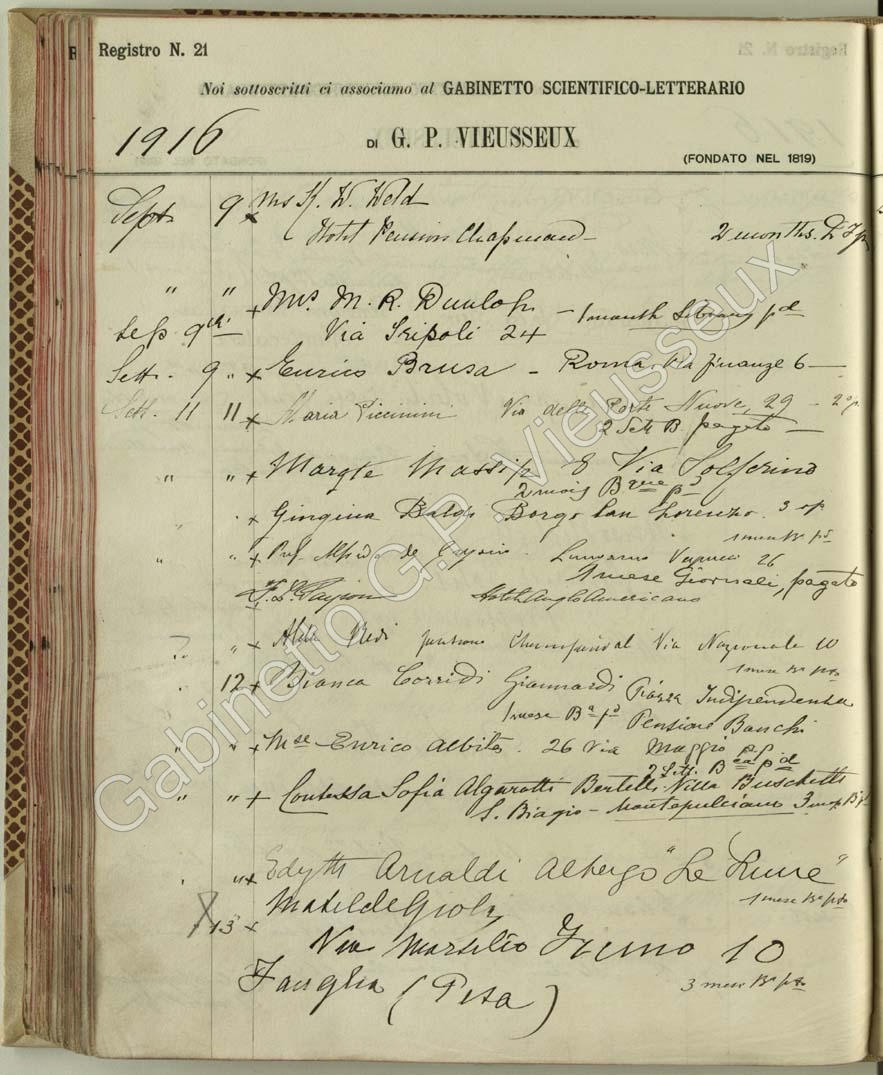 Registro N. 21
Noi sottoscritti ci associamo al GABINETTO SCIENTIFICO-LETTERARIO
1916 DI G. P. VIEUSSEUX
(FONDATO NEL 1819)
Sept. 9 x Ms H. W. Weld
Hotel Pension Chapman - 2 months.
" " x Mrs. M. R. Dunlop - 1 month Library pd
Sep. 9th. Via Ripoli 24
Sett. 9 " x Enrico Brusa - Roma, Via Finanze 6 -
Sett. 11 11 x Maria Piccinini Via delle Porte Nuove, 29 -
2 Sett B. pagato -
" " x Margte Massip 8 Via Solferino
2 mois pd
x Giorgina Baldi Borgo San Lorenzo. 3
1 mese Ba pto
" " x Prof. Alfredo de Lungarno Vespucci 26
1 mese Giornali, pagato
x Hotel Anglo Americano
" x Redi pensione Via Nazionale 10
1 mese Ba pto
12 x Bianca Corridi Giannardi Piazza Indipendenza
1 mese Ba pd Pensione Banchi
" " x Mse Enrico Albites. 26 Via Maggio
2 Sett. pd
" " x Contessa Sofia Algarotti Bertelli Villa Buschetti
S. Biagio - Montepulciano 3
" x Edyth Arnaldi Albergo "Le Rune"
1 mese Ba pto
13 x Matilde Gioli
Via Marsilio Ficino 10
Fauglia (Pisa)
3 mese Ba pto
Gabinetto G.P. Vieusseux